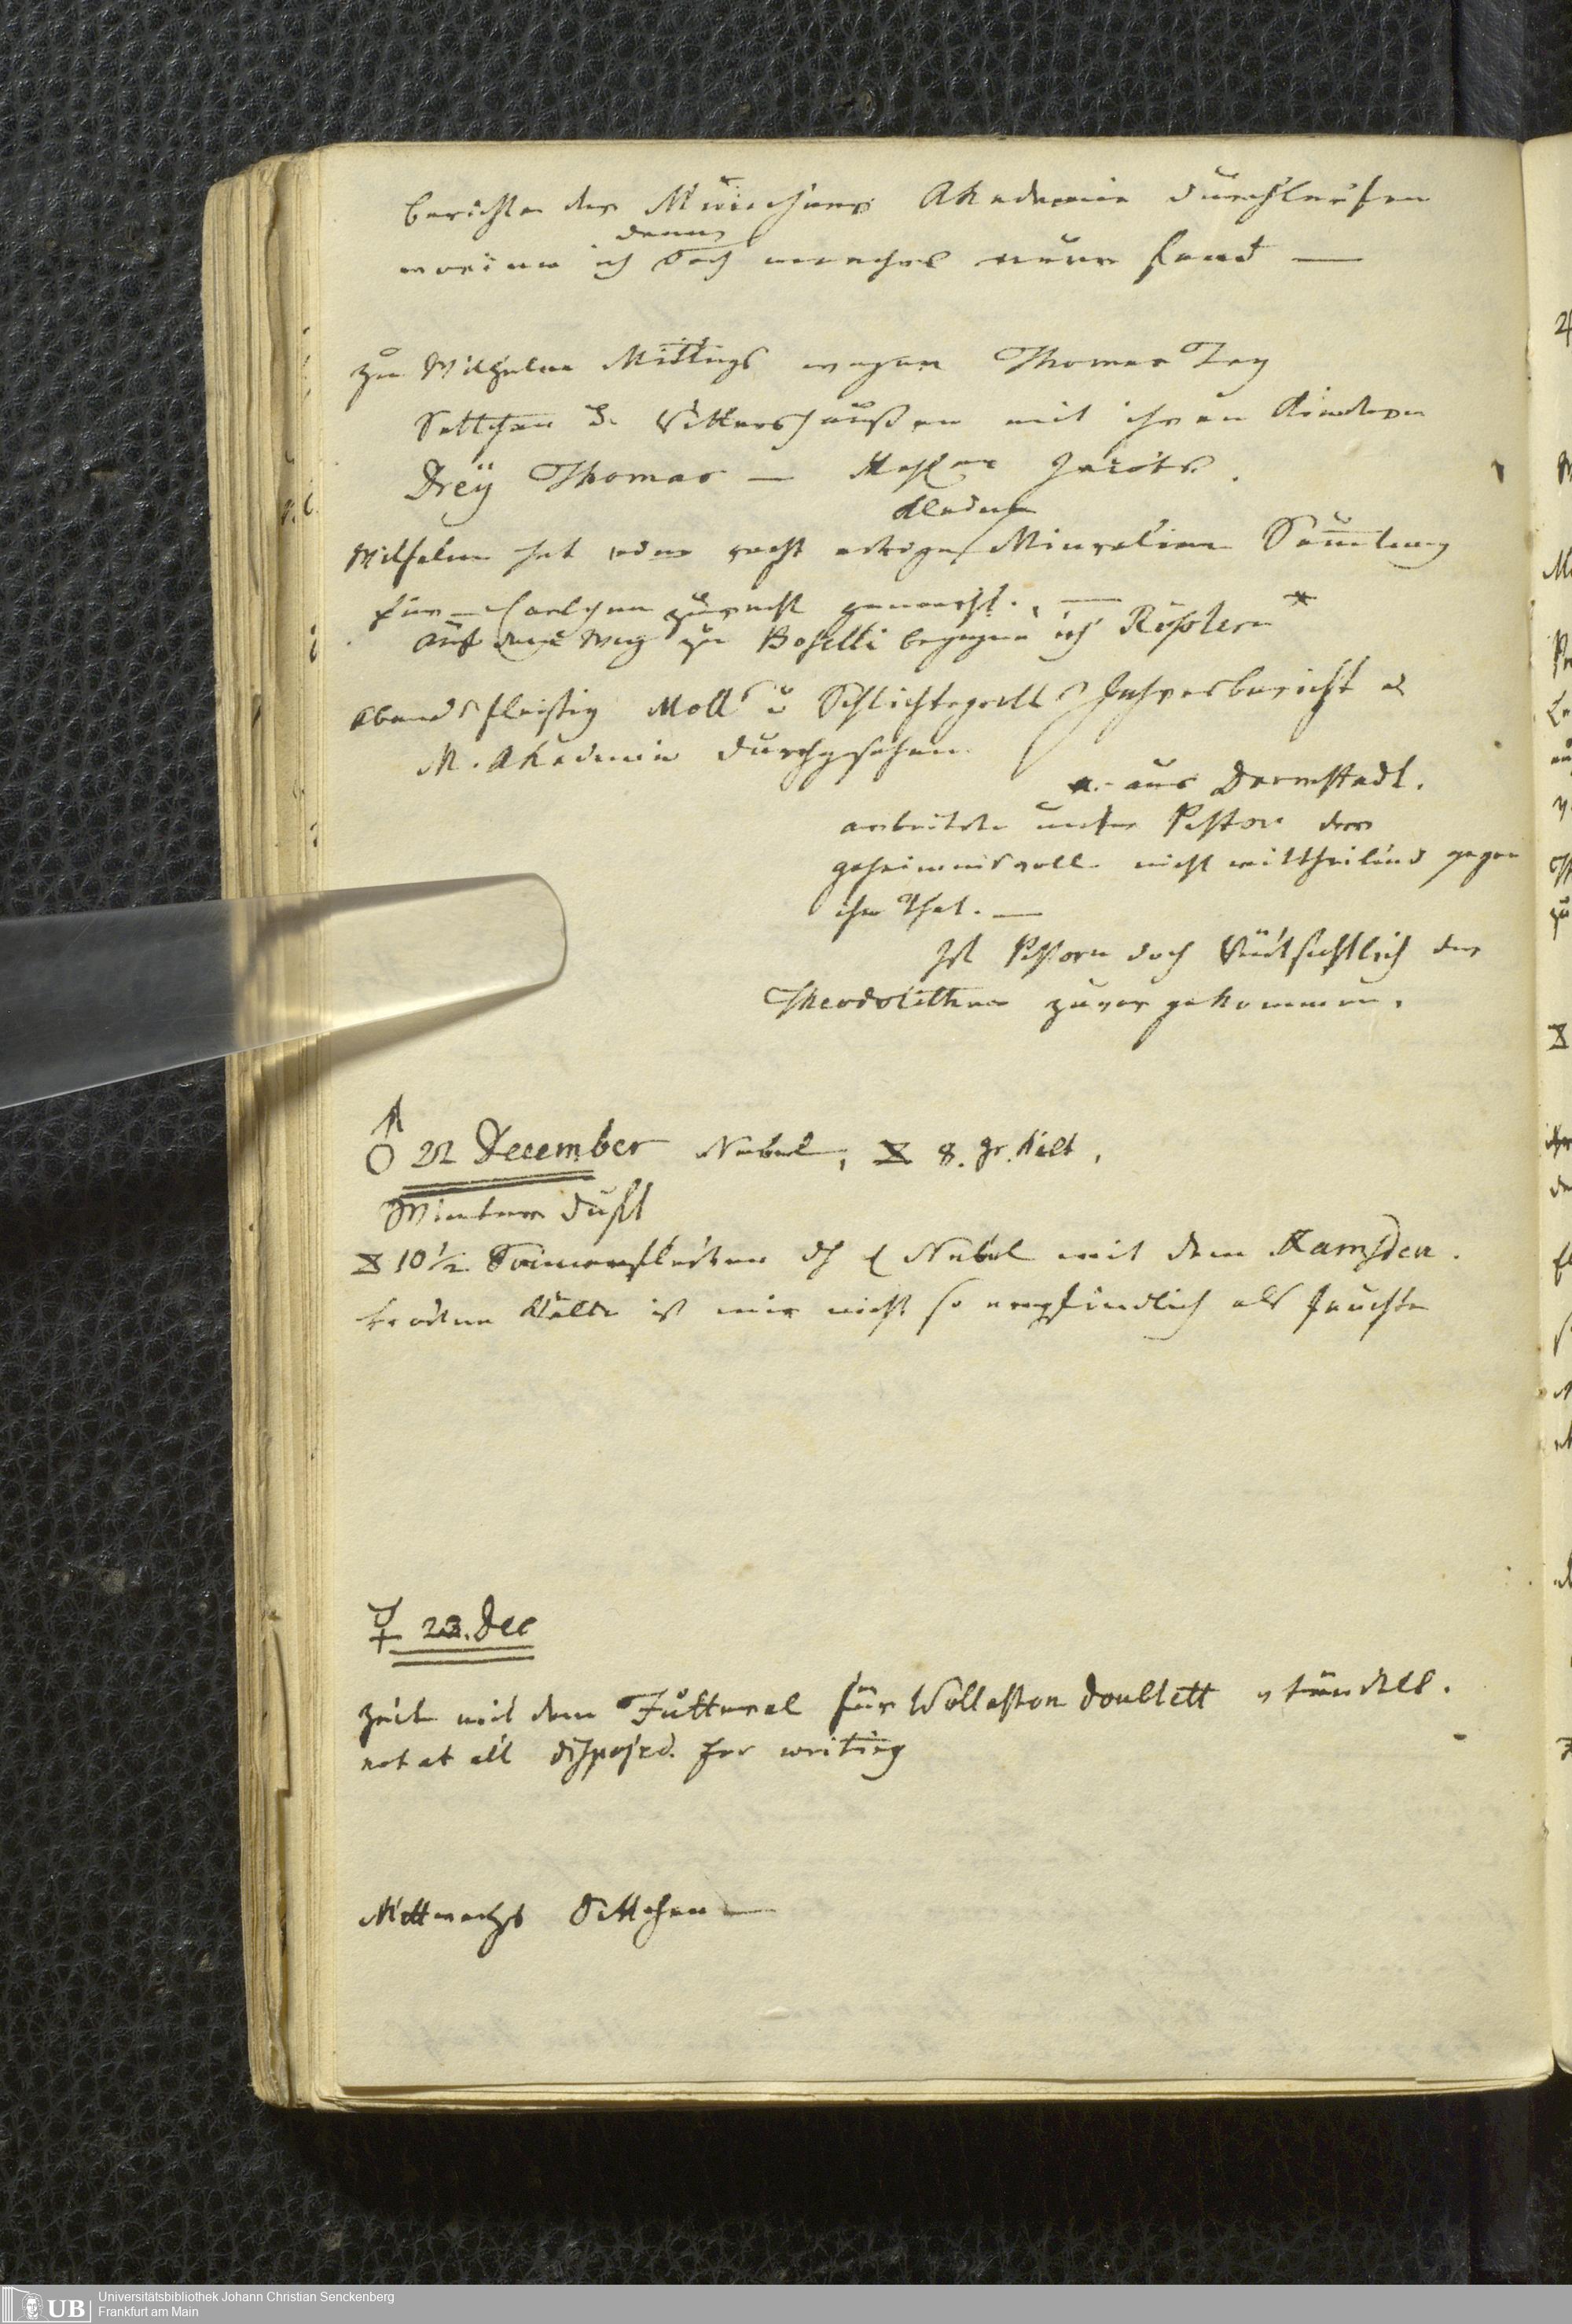 berichte der Münchner Akademie durchlaufen
denn
worinn ich doch manches neue fand —
zu Wilhelm Mittags wegen Thomas Tag
Settchen D. Vittershaußen mit ihren Kindern
Drey Thomas — Jacobs.
kleine
Wilhelm hat eine recht artige Mineralien Sammlung
für Carlchen zurecht gemacht. —
auf dem Weg zu Boselli begegne ich Rößlern *
abends fleißig Moll u Schlichtegrolls Jahresbericht d
M. Akademie durchgesehen
* aus Darmstadt.
arbeitete unter Pistor der
geheimnisvoll nicht mittheilend gegen
ihn that. —
Ist Pistorn doch hinsichtlich der
Theodolithen zuvor gekommen.
♂ 22 December Nebel, 8. gr. Kält,
Winter duft
10½ Sonnenflecken dh d Nebel mit dem Ramsden.
trockne Kälte ist mir nicht so empfindlich als feuchte
☿ 23. Dec
Zeit mit dem Futteral für Wollaston doublett vertändelt.
not at all disposed for writing
Mittwachs Dittchen —
Universitätsbibliothek Johann Christian Senckenberg
Frankfurt am Main
UB